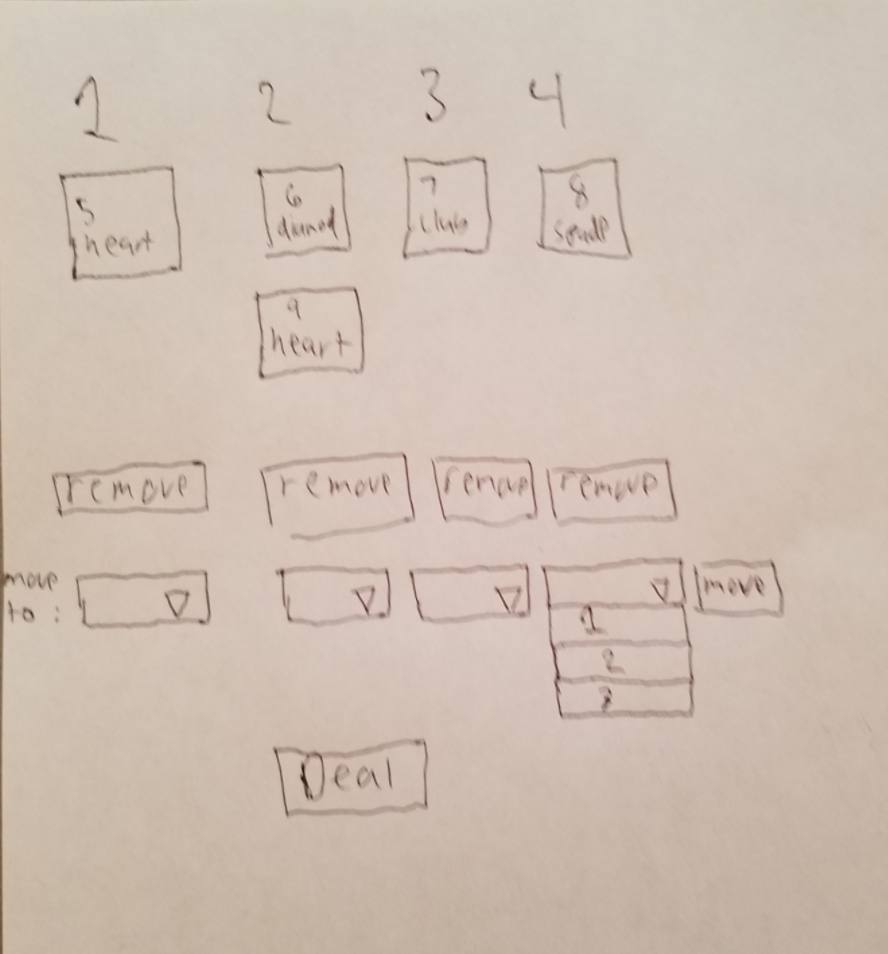 1 2 3 4
5 6 7 8
heart diamod club spade
9
heart
remove remove remove remove
move
to : move
1
2
3
Deal